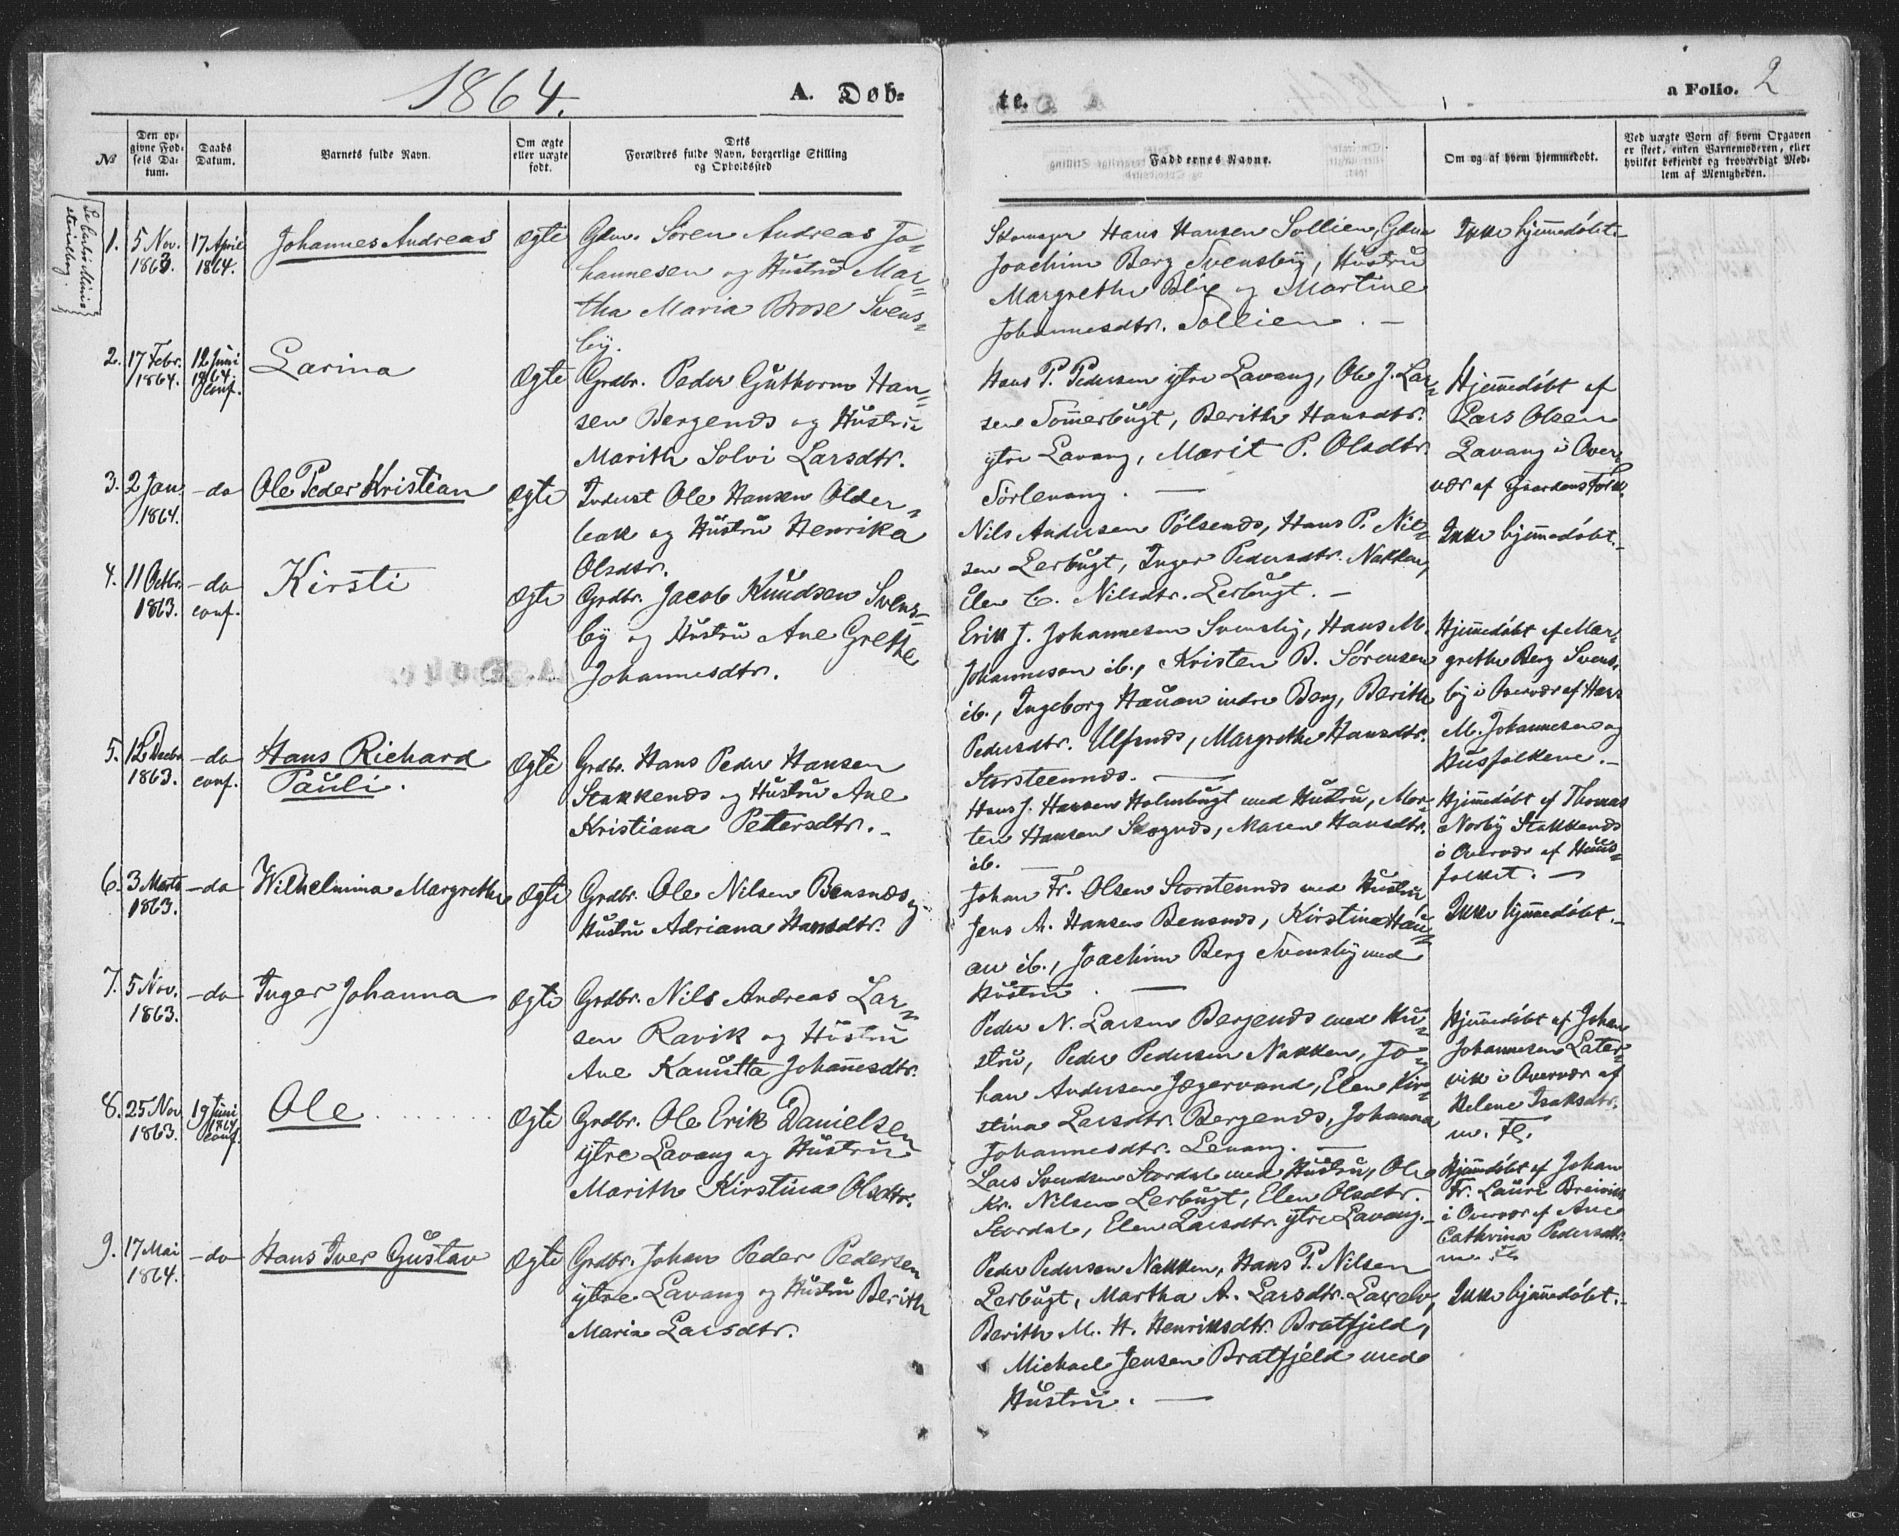 1864.
A. Døb-
te.
a Folio. 2
№
Den op-
givne Fød-
sels Da-
tum.
Daabs
Datum.
Barnets fulde Navn.
Om ægte
eller uægte
født.
Dets
Forældres fulde Navn, borgerlige Stilling
og Opholdssted
Faddernes Navne.
Om og af hvem hjemmedøbt.
Ved uægte Børn af hvem Opgaven
er skeet, enten Barnemoderen, eller
hvilket bekjendt og troværdigt Med-
lem af Menigheden.
1. 5 Nov.
1863.
17 April
1864.
Johannes Andreas
Ægte
Gdm. Sören Andreas Jo-
hannesen og Hustru Mar-
tha Maria Brose Svens-
by.
Hans Hansen Sollien, Gdm
Joachim Berg Svensby, Hustru
Margrethe Blix og Martine
Johannesdtr. Sollien. —
Ikke hjemmedøbt.
2. 17 Febr.
1864.
12 Juni
1864.
conf.
Larina
Ægte
Grdbr. Peder Guthorm Han-
sen Bergends og Hustru
Marith Solvi Larsdtr.
Hans P. Pedersen ytre Lavang, Ole J. Lar-
sen Sommerbugt, Berith Hansdtr.
ytre Lavang, Marit P. Olsdtr.
Sörlenang. —
Hjemmedøbt af
Lars Olsen
Lavang i Over-
vær af Gaardens Folk.
3. 2 Jan.
1864.
—do
Ole Peder Kristian
Ægte
Inderst Ole Hansen Older-
bak og Hustru Henrika
Olsdtr.
Nils Andersen Pølsends, Hans P. Nil-
sen Lerbugt, Inger Pedersdtr. Nakken,
Elen C. Nilsdtr. Lerbugt. —
Ikke hjemmedøbt.
4. 11 Octbr.
1863.
—do
conf.
Kirsti
Ægte
Grdbr. Jacob Knudsen Svens-
by og Hustru Ane Grethe
Johannesdtr.
Erik J. Johannesen Svensby, Hans M.
Johannesen ib., Kristen B. Sørensen
ib., Ingeborg Hauan indre Berg, Berith
Pedersdtr. Ulfsnds, Margrethe Hansdtr.
Storsteennds. —
Hjemmedøbt af Mar-
grethe Berg Svens-
by i Overvær af Hans
M. Johannesen og
Husfolkene.
5. 12 Decbr
1863.
—do
conf.
Hans Richard
Pauli.
Ægte
Grdbr. Hans Peder Hansen
Stakkends og Hustru Ane
Kristiana Pettersdtr.
Hans J. Hansen Holmbugt med Hustru, Mor-
ten Hansen Skognds, Maren Hansdtr.
ib. —
Hjemmedøbt af Thomas
Norby Stakkends
i Overvær af Huus-
folket. —
6. 3 Marts
1863.
—do
Wilhelmina Margrethe
Ægte
Grdbr. Ole Nilsen Bensnæs og
Hustru Adriana Hansdtr.
Johan Fr. Olsen Storstennds med Hustru,
Jens A. Hansen Bensnds, Kirstina Hau-
an ib., Joachim Berg Svensby med
Hustru. —
Ikke hjemmedøbt.
7. 5 Nov.
1863.
—do
Inger Johanna
Ægte
Grdbr. Nils Andreas Lar-
sen Ravik og Hustru
Ane Kanutta Johannesdtr.
Peder N. Larsen Bergends med Hu-
stru, Peder Pedersen Nakken, Jo-
han Andersen Jægervand, Elen Kir-
stina Larsdtr. Bergends, Johanna
Johannesdtr. Lenang. —
Hjemmedøbt af Johan
Johannesen Later-
vik i Overvær af
Helene Isaksdtr.
m. Fl.
8. 25 Nov
1863.
19 Juni
1864
conf.
Ole
Ægte
Grdbr. Ole Erik Danielsen
ytre Lavang og Hustru
Marith Kirstina Olsdtr.
Lars Svendsen Stordal med Hustru, Ole
Kr. Nilsen Lerbugt, Elen Olsdtr.
Stordal, Elen Larsdtr. ytre Lavang.
Hjemmedøbt af Johan
Fr. Lauri Breivik
i Overvær af Ane
Cathrina Pedersdtr.
m. Fl.
9. 17 Mai
1864.
—do
Hans Iver Gustav
Ægte
Grdbr. Johan Peder Pedersen
ytre Lavang og Hustru Berith
Maria Larsdtr.
Peder Pedersen Nakken, Hans P. Nilsen
Lerbugt, Martha A. Larsdtr. Laxelv,
Berith M. H. Henriksdtr. Bratfjeld,
Michael Jensen Bratfjeld med
Hustru. —
Ikke hjemmedøbt.